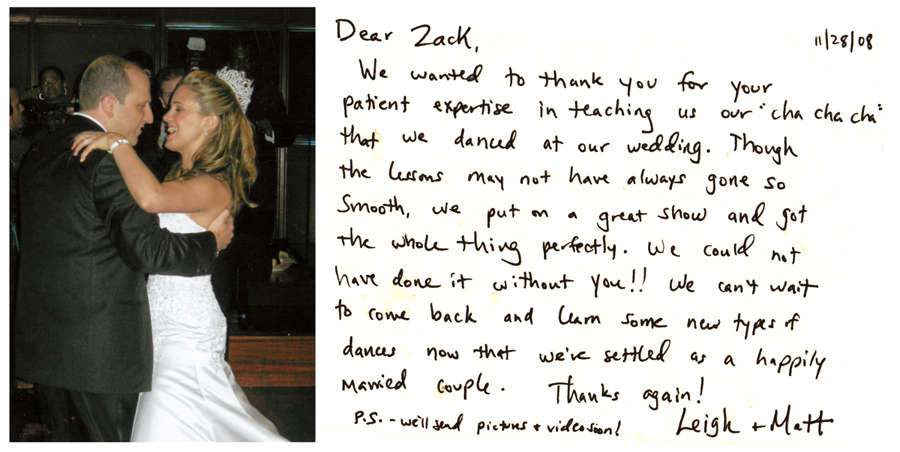 Dear Zack,
11/28/08
We wanted to thank you for your
patient expertise in teaching us our "cha cha cha"
that we danced at our wedding. Though
the lessons may not have always gone so
smooth, we put on a great show and got
the whole thing perfectly. We could not
have done it without you!! We can't wait
to come back and learn some new types of
dances now that we've settled as a happily
married couple. Thanks again!
P.S. - we'll send pictures + video soon!
Leigh + Matt